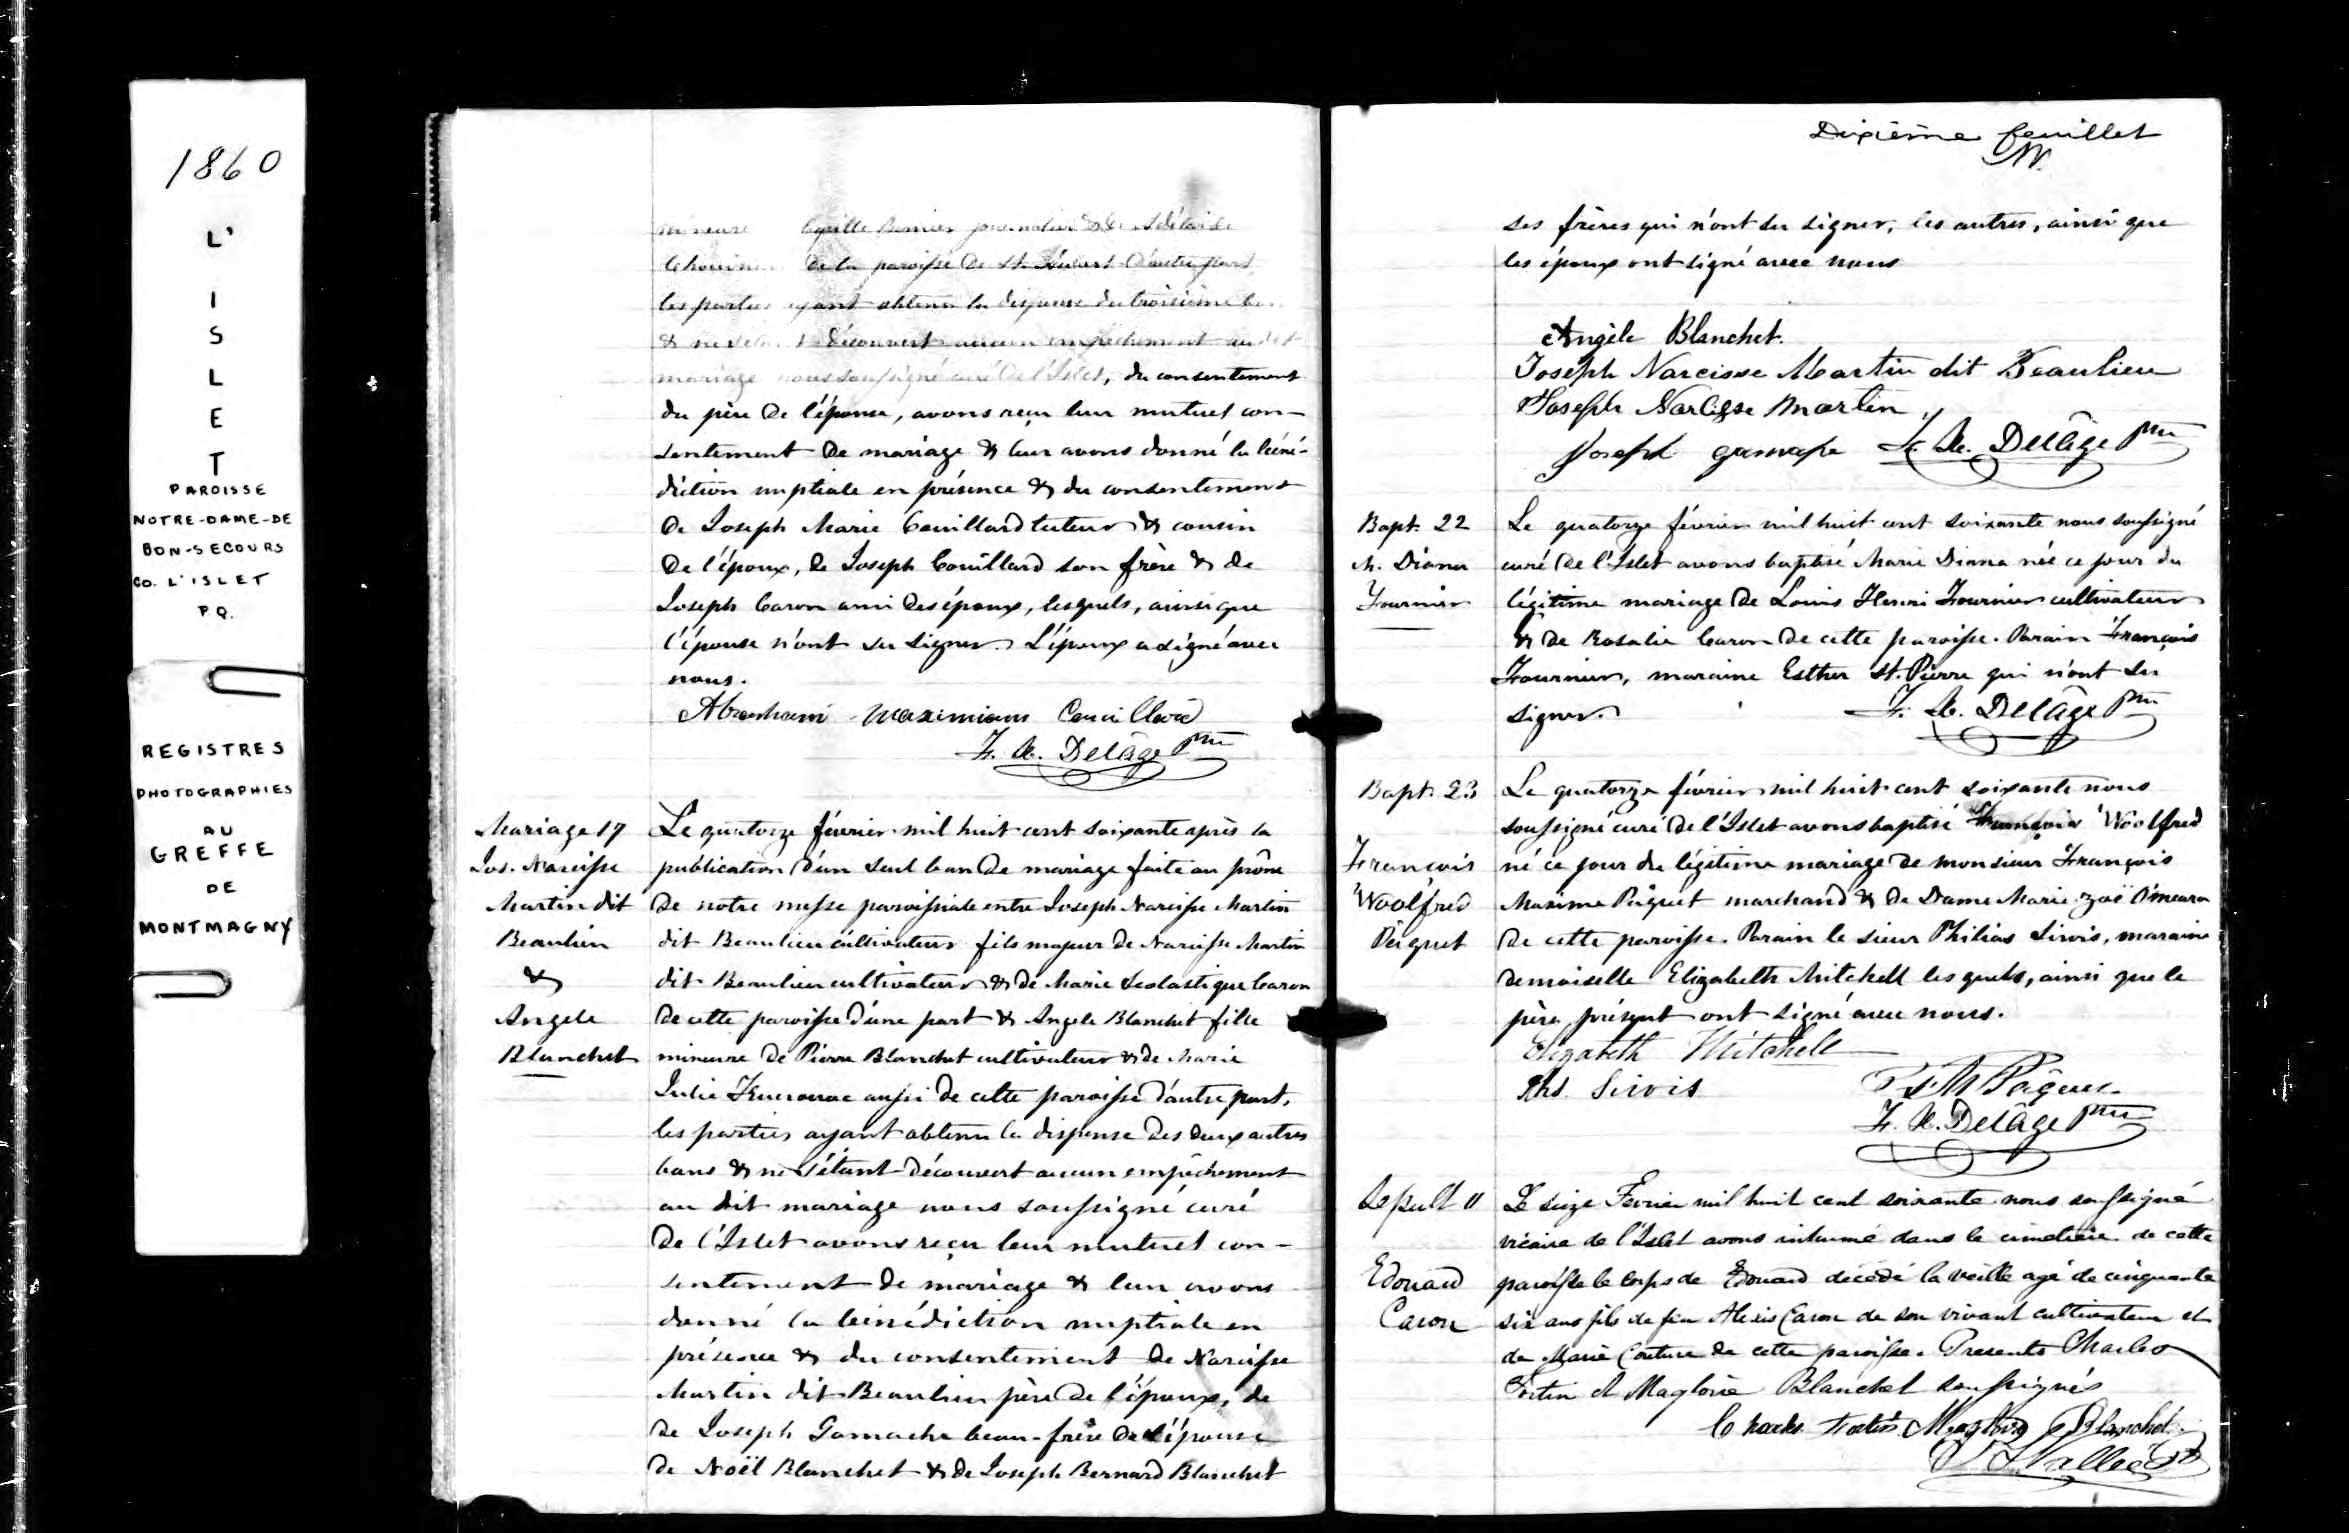 1860
L'
I
S
L
E
T
PAROISSE
NOTRE-DAME-DE
BON-SECOURS
CO. L'ISLET
P.Q.
REGISTRES
PHOTOGRAPHIES
AU
GREFFE
DE
MONTMAGNY
mineure Cyrille Bernier journalier & de Adélaïde
de la paroisse de St. d'autre part
les parties ayant obtenu la dispense du troisième
& ne découvert aucun empêchement au dit
mariage nous soussigné curé de l'Islet, du consentement
du père de l'épouse, avons reçu leur mutuel con-
sentement de mariage & leur avons donné la béné-
diction nuptiale en présence & du consentement
de Joseph Marie Couillard tuteur & cousin
de l'époux, de Joseph Couillard son frère & de
Joseph Caron ami des époux, lesquels, ainsi que
l'épouse n'ont su signer. L'époux a signé avec
nous.
Abraham Maximien Couillard
F. X. Delâge Ptre
Mariage 17
Jos. Narcisse
Martin dit
Beaulieu
&
Angele
Blanchet
Le quatorze février mil huit cent soixante après la
publication d'un seul ban de mariage faite au prône
de notre messe paroissiale entre Joseph Narcisse Martin
dit Beaulieu cultivateur fils majeur de Narcisse Martin
dit Beaulieu cultivateur & de Marie Scolastique Caron
de cette paroisse d'une part & Angele Blanchet fille
mineure de Pierre Blanchet cultivateur & de Marie
Julie aussi de cette paroisse d'autre part,
les parties ayant obtenu la dispense des deux autres
bans & ne s'étant découvert aucun empêchement
au dit mariage nous soussigné curé
de l'Islet avons reçu leur mutuel con-
sentement de mariage & leur avons
donné la bénédiction nuptiale en
présence & du consentement de Narcisse
Martin dit Beaulieu père de l'époux, de
de Joseph Gamache beau-frère de l'épouse
de Noël Blanchet & de Joseph Bernard Blanchet
Dixième feuillet
ses frères qui n'ont su signer, les autres, ainsi que
les époux ont signé avec nous
Angèle Blanchet.
Joseph Narcisse Martin dit Beaulieu
Joseph Narcisse Martin
Joseph gamache F. X. Delâge Ptre
Bapt. 22
M. Diana
Fournier
Le quatorze février mil huit cent soixante nous soussigné
curé de l'Islet avons baptisé Marie Diana née ce jour du
légitime mariage de Louis Henri Fournier cultivateur
& de Rosalie Caron de cette paroisse. Parain François
Fournier, maraine Esther St. Pierre qui n'ont su
signer. F. X. Delâge Ptre
Bapt. 23
François
Woolfred
Pâquet
Le quatorze février mil huit cent soixante nous
soussigné curé de l'Islet avons baptisé François Woolfred
né ce jour du légitime mariage de monsieur François
Maxime Pâquet marchand & de Dame Marie Zoë O'meara
de cette paroisse. Parain le sieur Philias Sirois, maraine
demoiselle Elizabeth Mitchell lesquels, ainsi que le
père présent ont signé avec nous.
Elizabeth Mitchell
Phs. Sirois F. M. Pâquet
F. X. Delâge Ptre
Sepult 11
Edouard
Caron
Le seize Fevrier mil huit cent soixante nous soussigné
vicaire de l'Islet avons inhumé dans le cimetière de cette
paroisse le corps de Edouard décédé la veille agé de cinquante
six ans fils de feu Alexis Caron de son vivant cultivateur et
de Marie Couture de cette paroisse. Presents Charles
Fortin et Magloire Blanchet soussignés
Charles Fortin Magloire Blanchet
Vallée Ptre